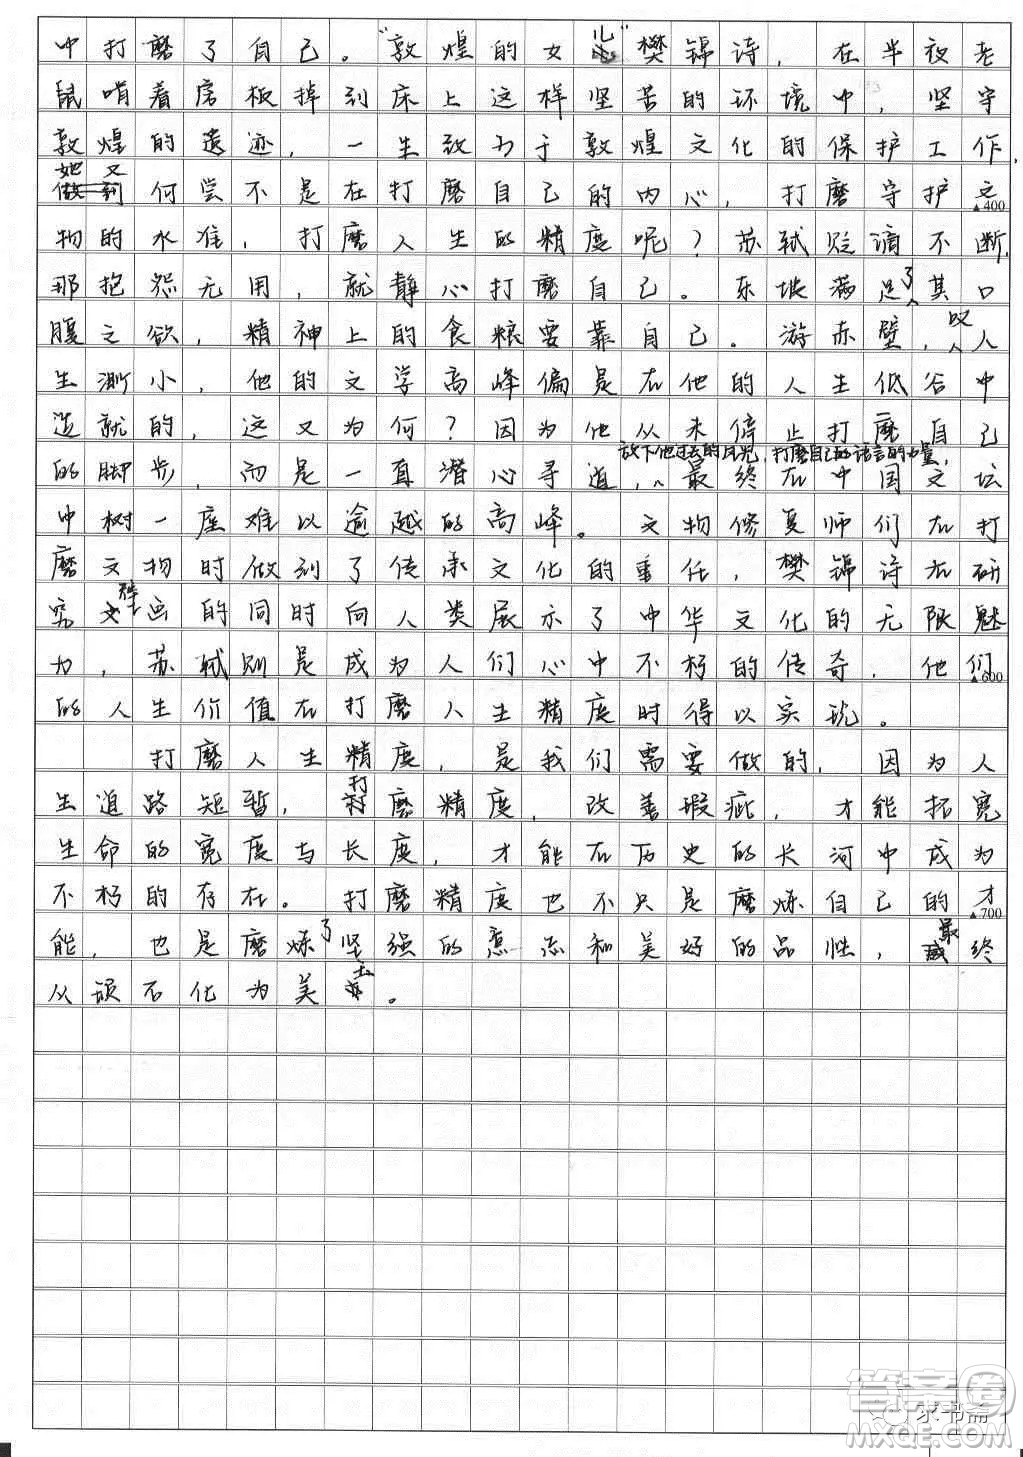 中打磨了自己。“敦煌的女儿”樊锦诗，在半夜老
鼠啃着房板掉到床上这样坚苦的环境中，坚守
敦煌的遗迹，一生致力于敦煌文化的保护工作，
她又何尝不是在打磨自己的内心，打磨守护文
▲400
物的水准，打磨人生的精度呢？苏轼贬谪不断，
那抱怨无用，就静心打磨自己。东坡满足了其口
腹之欲，精神上的食粮要靠自己。游赤壁，叹人
生渺小，他的文学高峰偏是在他的人生低谷中
造就的，这又为何？因为他从未停止打磨自己
放下他过去的月光，打磨自己的语言的力量，
的脚步，而是一直潜心寻道，最终在中国文坛
中树一座难以逾越的高峰。文物修复师们在打
磨文物时做到了传承文化的重任，樊锦诗在研
究壁画的同时向人类展示了中华文化的无限魅
力，苏轼则是成为人们心中不朽的传奇，他们
▲600
的人生价值在打磨人生精度时得以实现。
打磨人生精度，是我们需要做的，因为人
生道路短暂，打磨精度，改善瑕疵，才能拓宽
生命的宽度与长度，才能在历史的长河中成为
不朽的存在。打磨精度也不只是磨炼自己的才
▲700
能，也是磨炼了坚强的意志和美好的品性，最终
从顽石化为美玉。
答案圈
求书斋
MXQE.COM